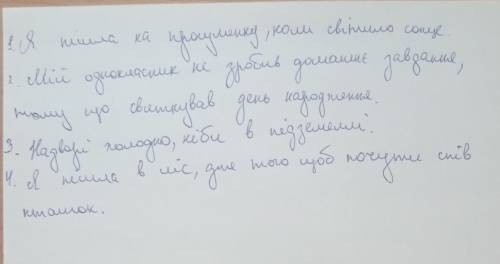 1. Я пішла на прогулянку, коли світило сонце.
2. Мій однокласник не зробив домашнє завдання,
тому що святкував день народження.
3. Надворі холодно, ніби в підземеллі.
4. Я пішла в ліс, для того щоб почути спів
пташок.